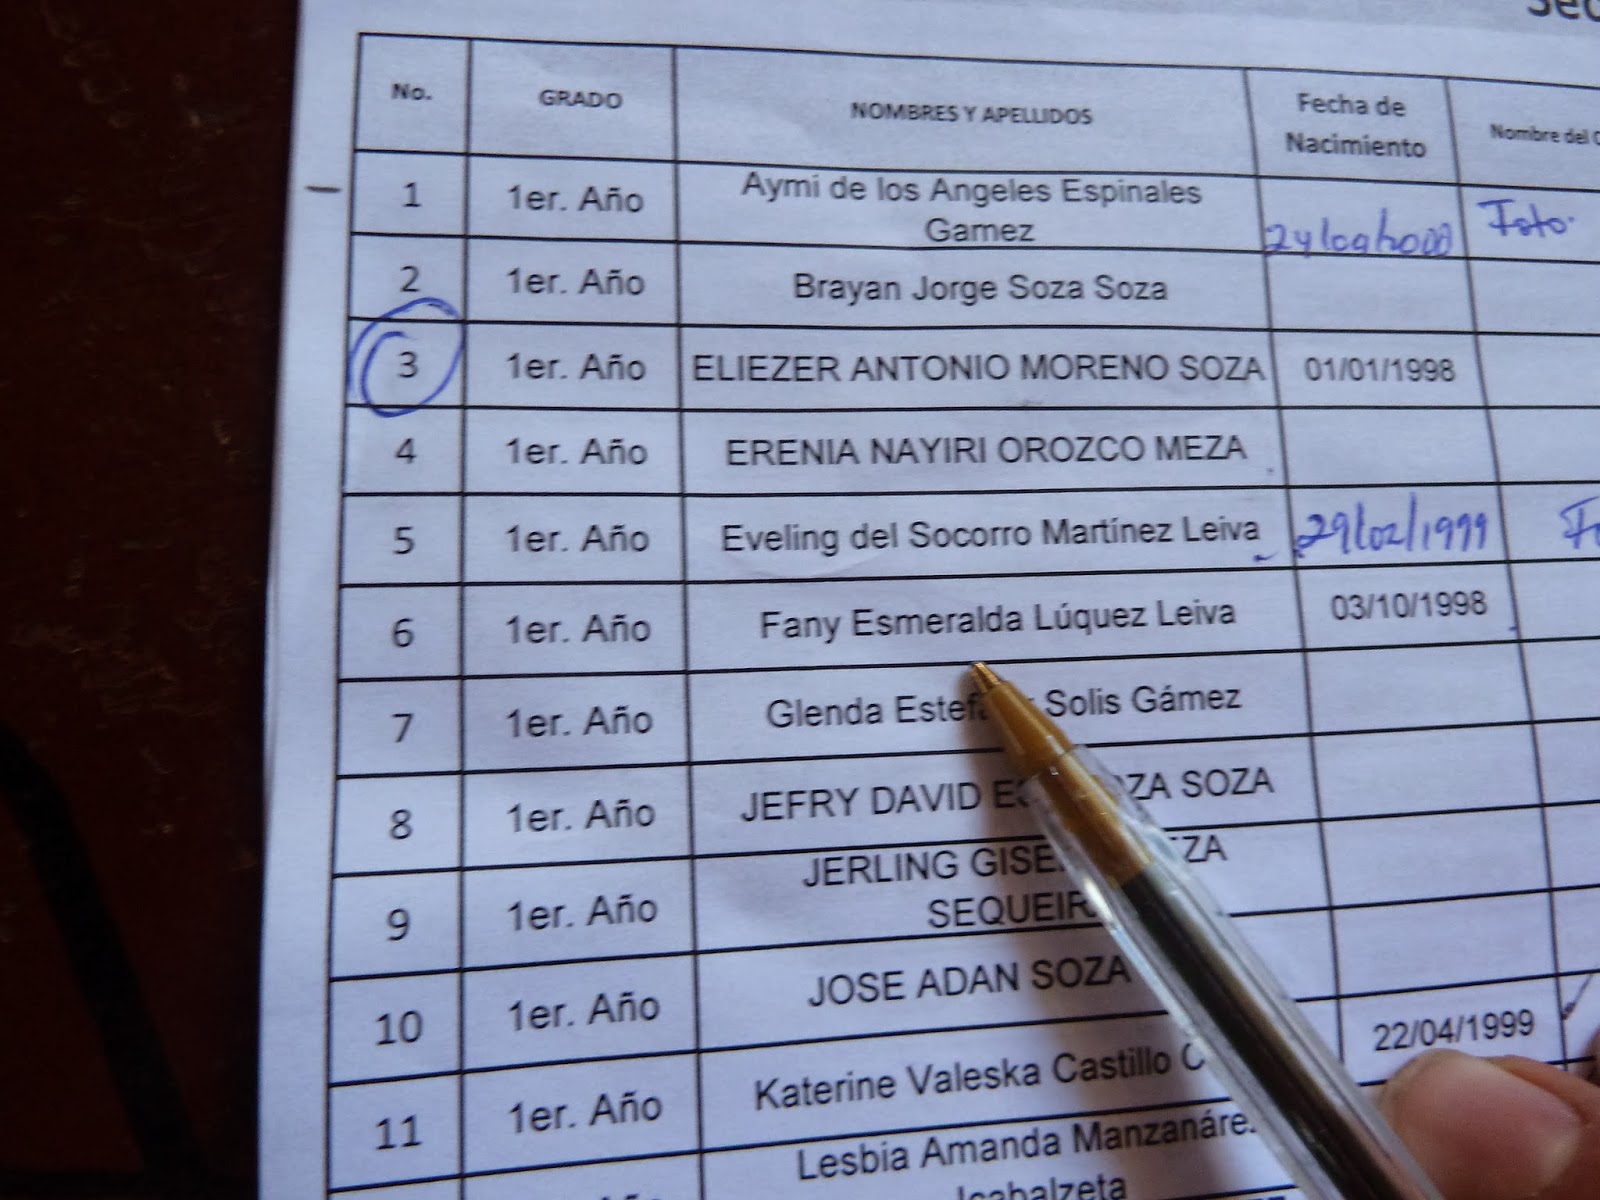 No. GRADO NOMBRES Y APELLIDOS Fecha de Nacimiento Nombre del
1 1er. Año Aymi de los Angeles Espinales Gamez 24/09/2000 Foto.
2 1er. Año Brayan Jorge Soza Soza
3 1er. Año ELIEZER ANTONIO MORENO SOZA 01/01/1998
4 1er. Año ERENIA NAYIRI OROZCO MEZA
5 1er. Año Eveling del Socorro Martínez Leiva 29/02/1999
6 1er. Año Fany Esmeralda Lúquez Leiva 03/10/1998
7 1er. Año Glenda Solis Gámez
8 1er. Año JEFRY DAVID SOZA
9 1er. Año JERLING
10 1er. Año JOSE ADAN SOZA
11 1er. Año Katerine Valeska Castillo 22/04/1999
Lesbia Amanda